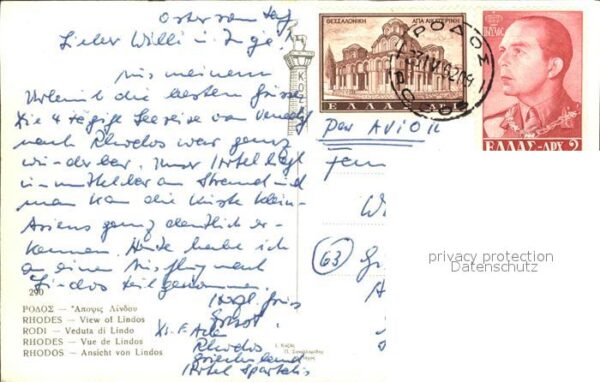 Ostersonntag
Lieber Willi u. Inge!
Aus meinem
Urlaub die besten Grüsse
Die 4 tägige Seereise von Venedig
nach Rhodos war ganz
wunderbar. Unser Hotel liegt
unmittelbar am Strand und
man kan die Küste Klein-
Asiens ganz deutlich er-
kennen. Heute habe ich
an einem Ausflug nach
Lindos teilgenommen.
Hotel Spartalis
Rhodos
Griechenland
290
ΡΟΔΟΣ — Ἄποψις Λίνδου
RHODES — View of Lindos
RODI — Veduta di Lindo
RHODES — Vue de Lindos
RHODOS — Ansicht von Lindos
ΘΕΣΣΑΛΟΝΙΚΗ ΑΓΙΑ ΑΙΚΑΤΕΡΙΝΗ
ΕΛΛΑΣ
ΡΟΔΟΣ
ΠΑΥΛΟΣ
ΕΛΛΑΣ-ΔΡΧ. 2
Par AVION
63
privacy protection
Datenschutz